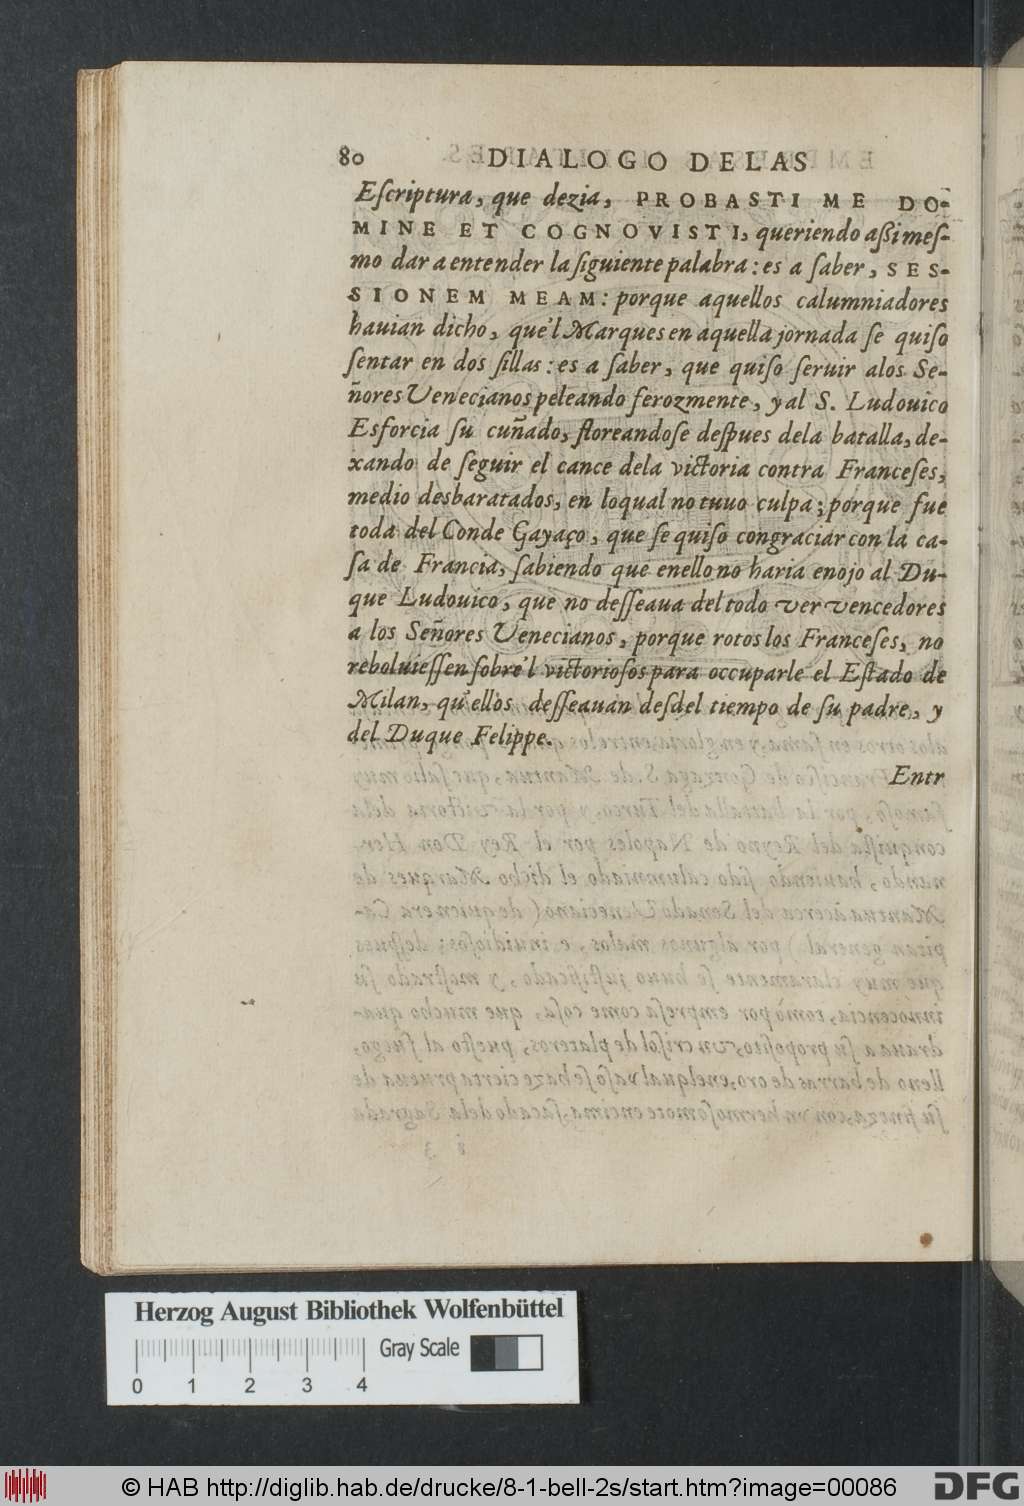 80 DIALOGO DE LAS
Eſcriptura, que dezia, PROBASTI ME DO-
MINE ET COGNOVISTI, queriendo aßimeſ-
mo dar a entender la ſiguiente palabra: es a ſaber, SES-
SIONEM MEAM: porque aquellos calumniadores
hauian dicho, que'l Marques en aquella jornada ſe quiſo
ſentar en dos ſillas: es a ſaber, que quiſo ſeruir alos Se-
ñores Venecianos peleando ferozmente, y al S. Ludouico
Esforcia ſu cuñado, floreandoſe deſpues dela batalla, de-
xando de ſeguir el cance dela victoria contra Franceſes,
medio desbaratados, en loqual no tuuo culpa; porque fue
toda del Conde Gayaço, que ſe quiſo congraciar con la ca-
ſa de Francia, ſabiendo que enello no haria enojo al Du-
que Ludouico, que no deſſeaua del todo ver vencedores
a los Señores Venecianos, porque rotos los Franceſes, no
reboluieſſen ſobre'l victorioſos para occuparle el Eſtado de
Milan, qu'ellos deſſeauan deſdel tiempo de ſu padre, y
del Duque Felippe.
Entr
Herzog August Bibliothek Wolfenbüttel
Gray Scale
0 1 2 3 4
© HAB http://diglib.hab.de/drucke/8-1-bell-2s/start.htm?image=00086
DFG